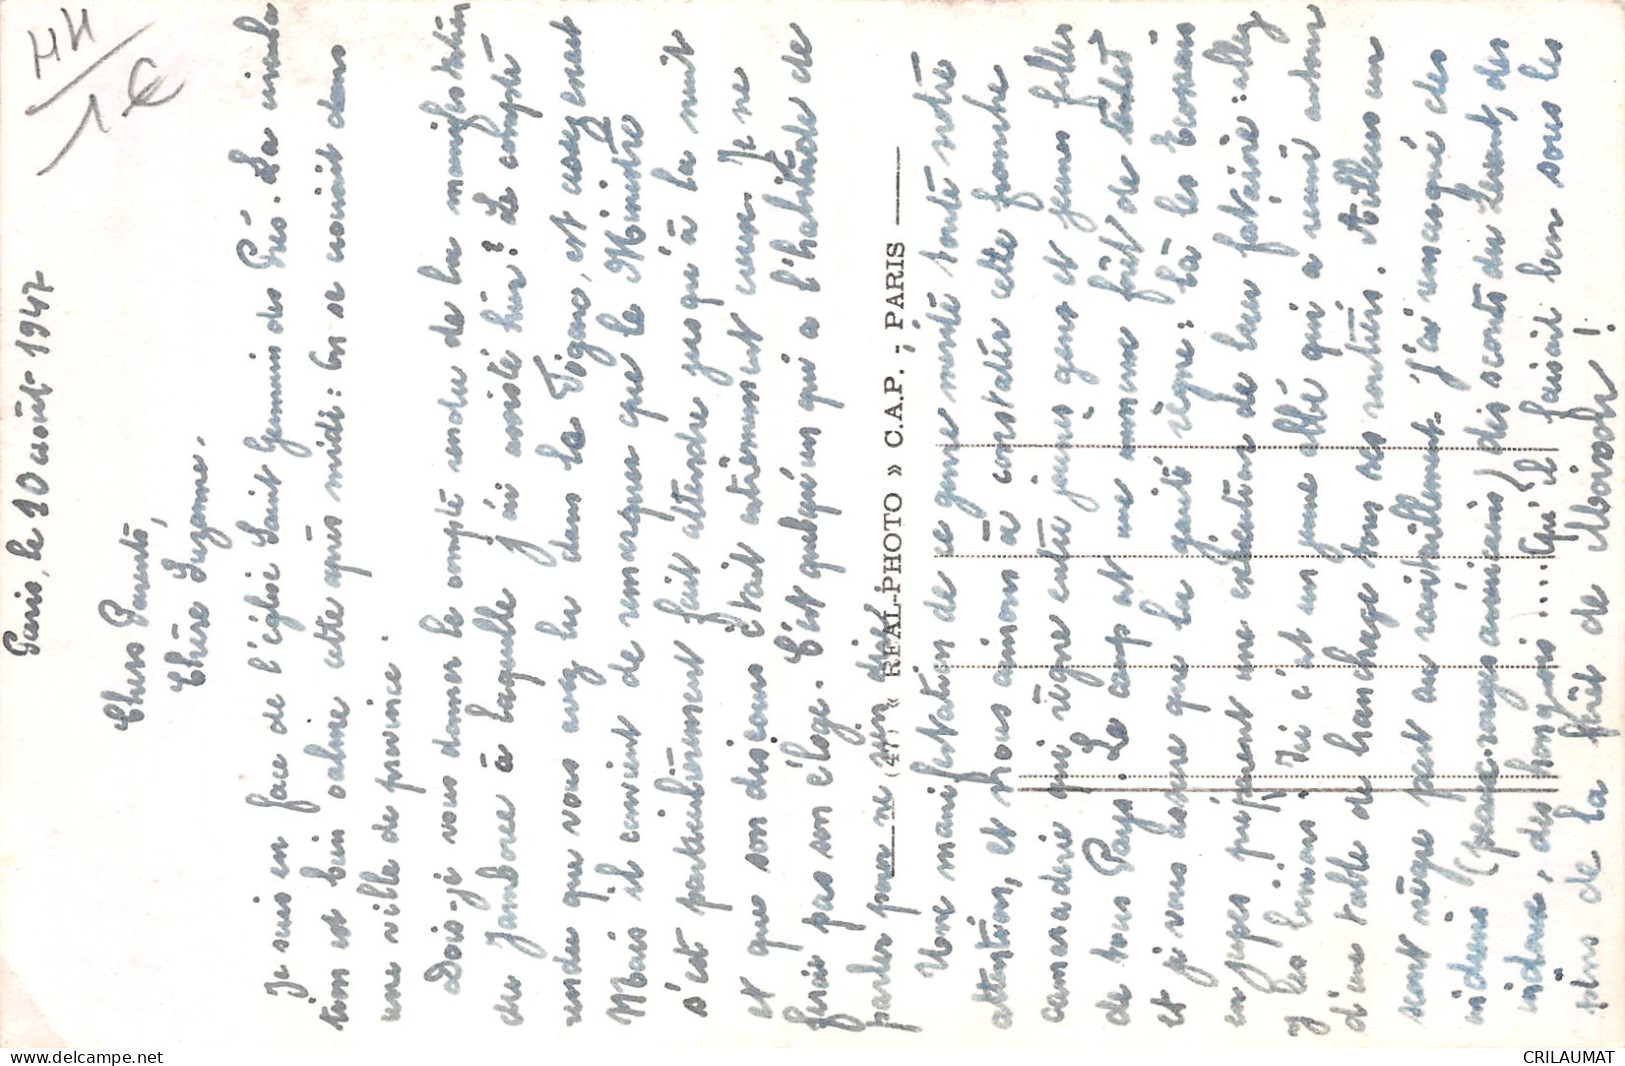 Paris, le 10 août 1947
Chers Parents,
Chère Suzanne,
Je suis en face de l'église Saint Germain des Prés. La circula
tion est bien calme cette après midi : on se croirait dans
une ville de province.
Dois-je vous donner le compte rendu de la manifestation
du Jamboree à laquelle j'ai assisté hier ? Le compte
rendu que vous avez lu dans le Figaro, est assez exact
Mais il convient de remarquer que le Ministre
s'est particulièrement fait attendre jusqu'à la nuit
et que son discours était extrêmement creux. Je ne
ferai pas son éloge. C'est quelqu'un qui a l'habitude de
parler pour ne rien dire !
(47) « REAL-PHOTO » C.A.P. - PARIS
Une manifestation de ce genre mérite toute notre
attention, et nous aimons à constater cette franche
camaraderie qui règne entre jeunes gens et jeunes filles
de tous Pays. Le camp est une immense forêt de tentes
et je vous assure que la gaieté règne : là les Ecossais
en jupes préparent une exhibition de leur fantaisie : allez
y les binious ! Ici c'est un jeune abbé qui a réuni autour
d'une table de branchage tous ses routiers. Ailleurs un
scout nègre part au ravitaillement. J'ai remarqué des
indiens (peaux-rouges américains) des scouts du Levant, des
indous, des hongrois .... Qu'il faisait bon sous les
pins de la forêt de Moisson !
HH
1€
CRILAUMAT
delcampe.net